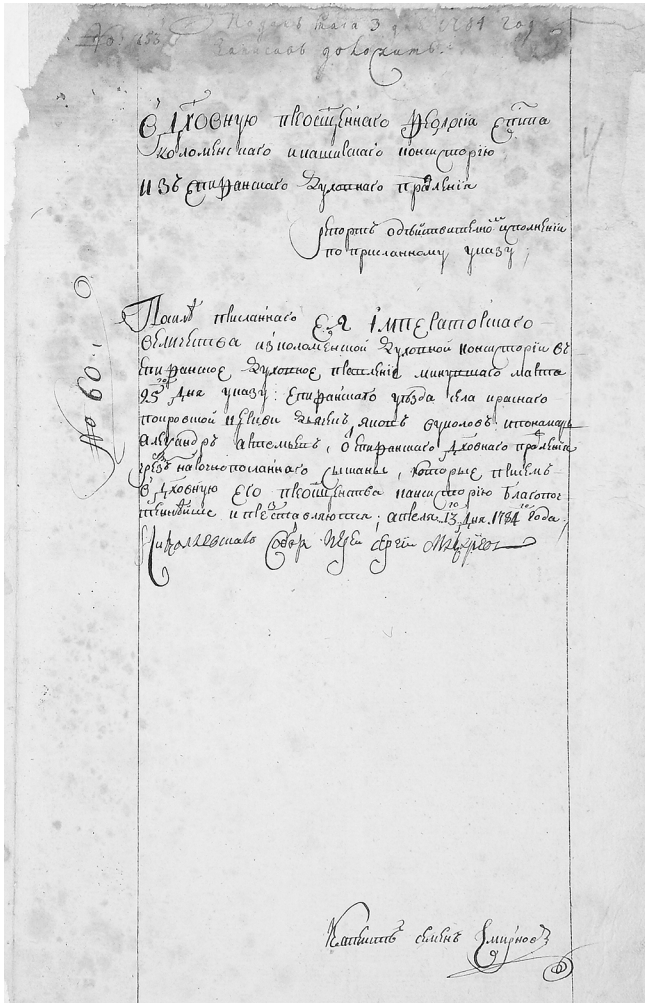 № 853 Подано маiя 3 дня 1784 год
Записавъ доложить.
Въ Дховную преосщеннаго Феодосiа епспа
коломенскаго икаширскаго консисторiю
изъ епифанскаго духовнаго правленiя
Репортъ одѣйствителномъ исполненiи
по присланному указу;
№ 60
По силѣ присланнаго ЕЯ IМПЕРАТОРСкаго
величества изколоменской духовной консисторiи въ
епифанское духовное правленiе минувшаго марта
25го дня указу: епифанскаго уезда села краснаго
покровской церкви дьячекъ яковъ ѳуколов: ипономарь
александръ артемьевъ, в епифанскаго духовнаго правленiя
чрезъ нарочнопосланнаго сысканы, которые присемъ
в дховную его преосщенства консисторiю благопоч
тѣннѣйше и представляются; апреля 13го дня 1784го года;
Николаевскаго Собора Iерей сергiй
Канцеляристъ семенъ Смирновъ